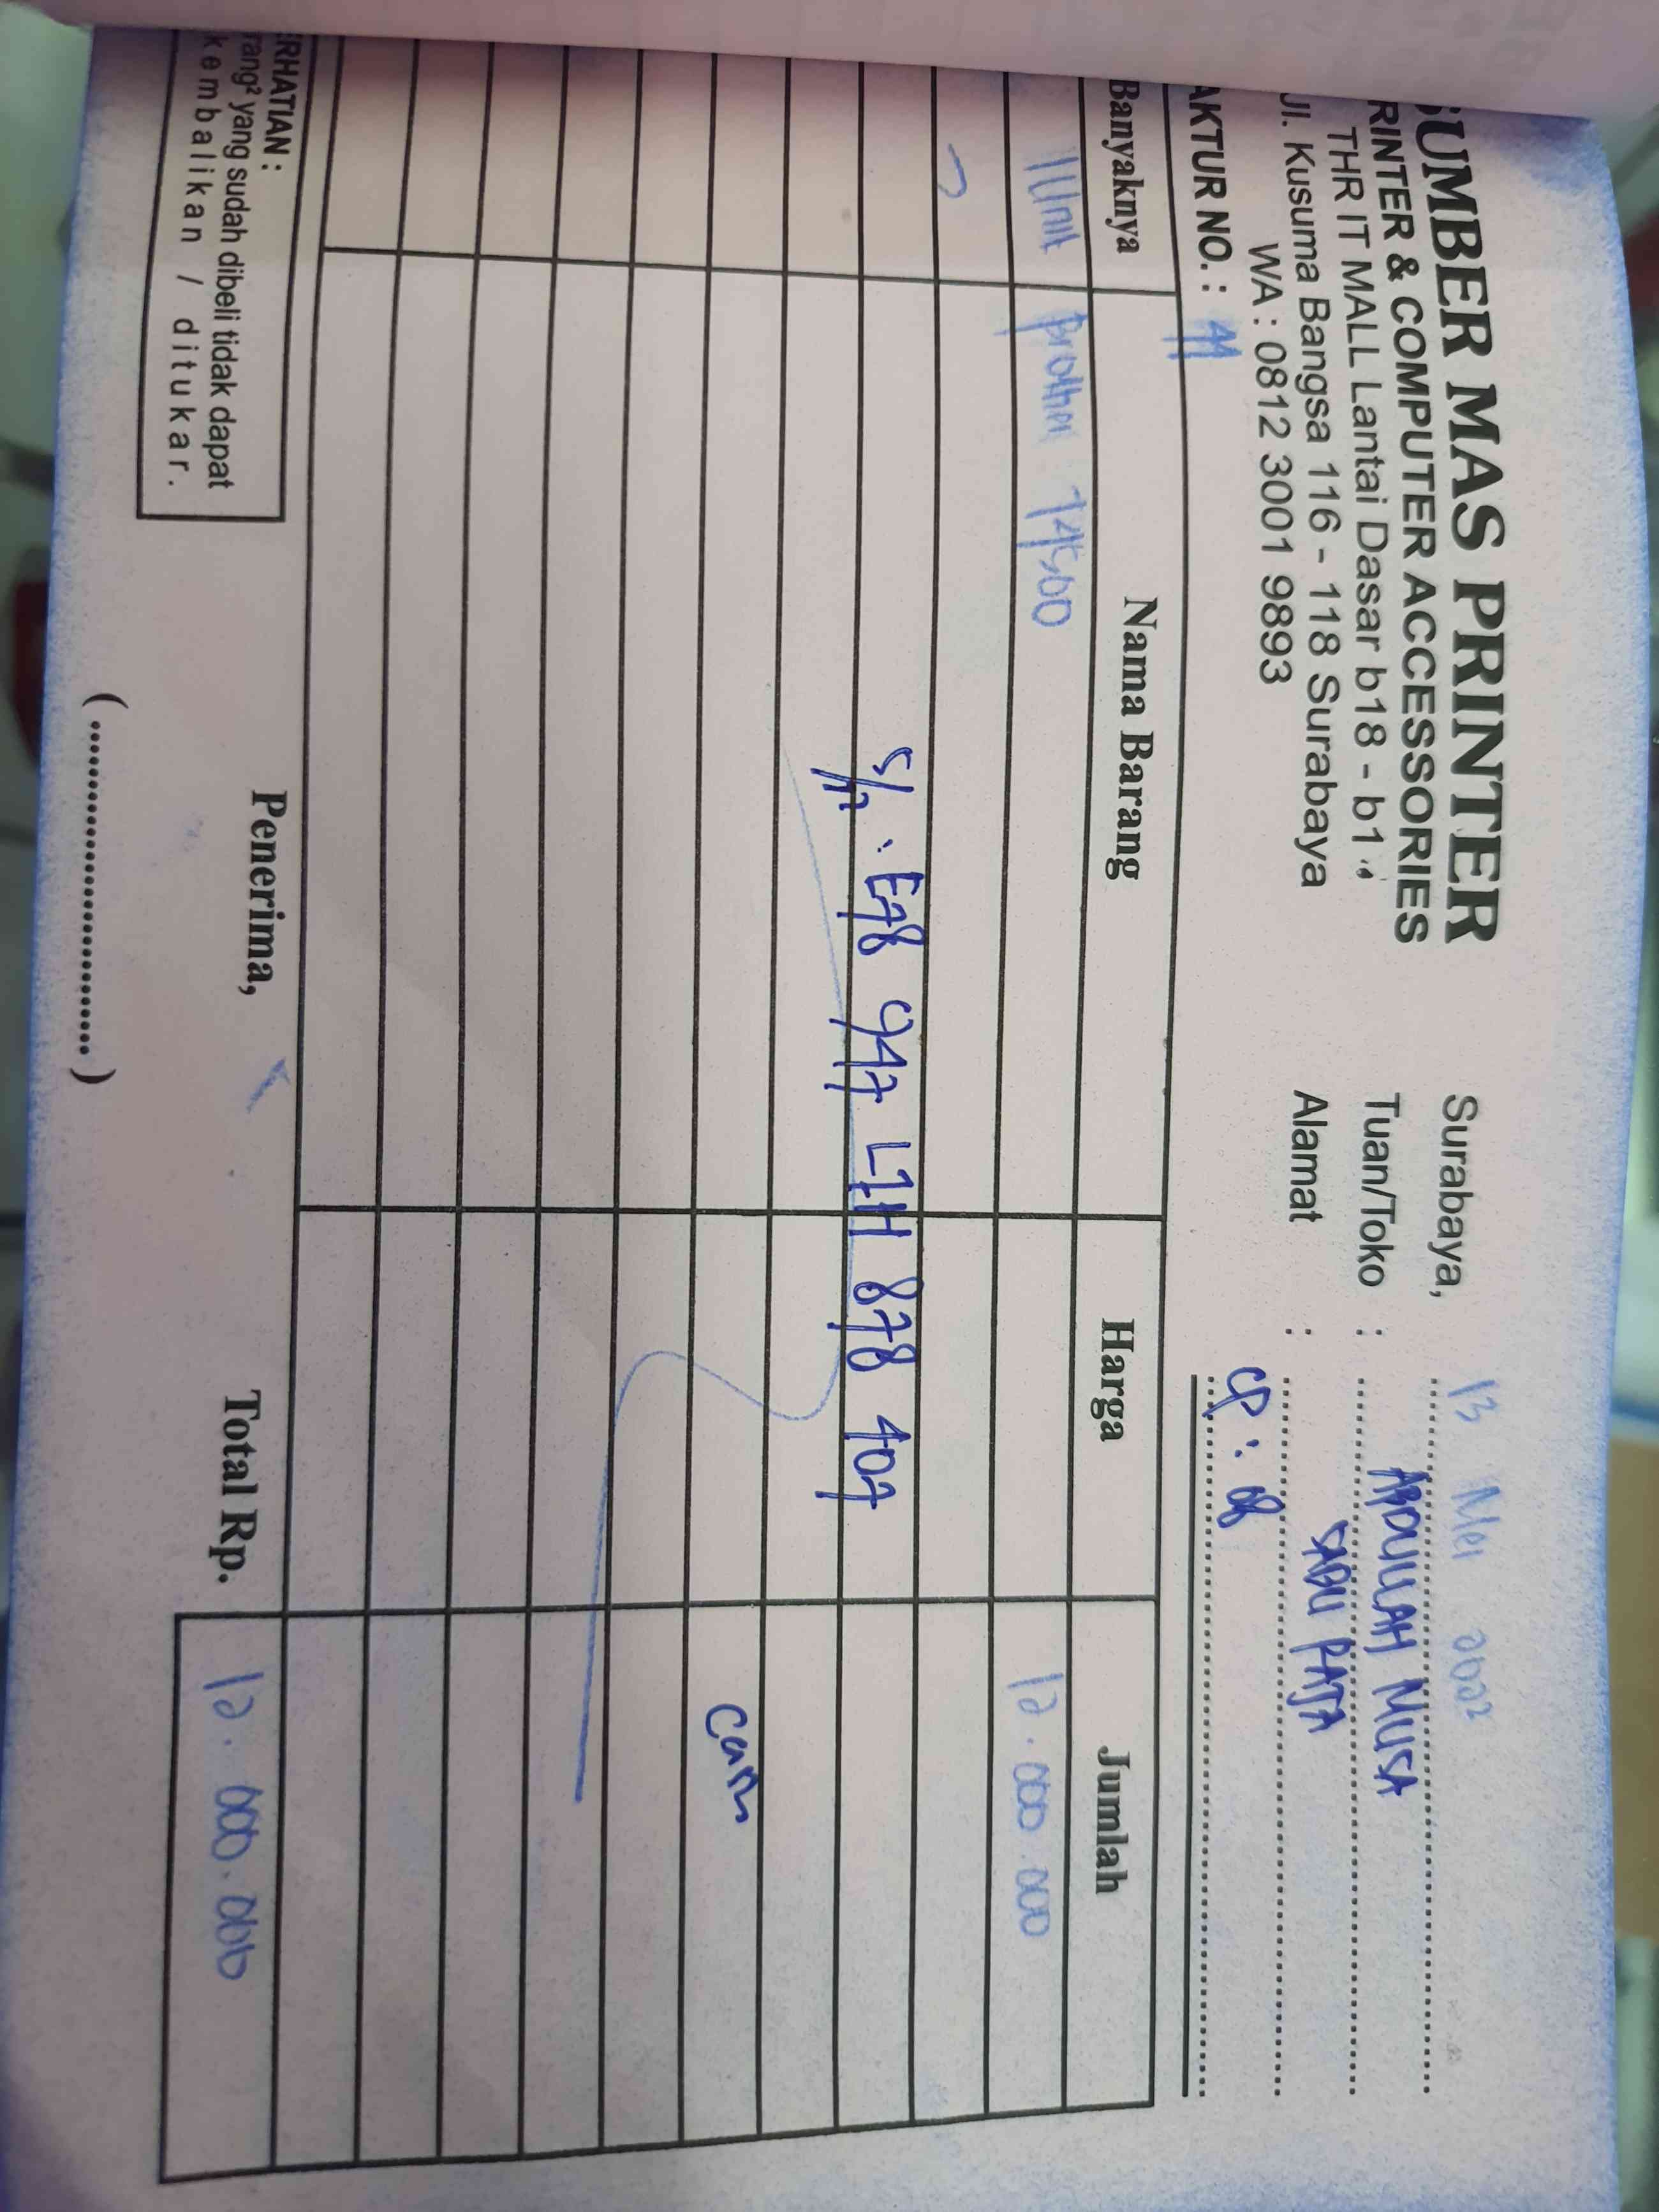 SUMBER MAS PRINTER
RINTER & COMPUTER ACCESSORIES
THR IT MALL Lantai Dasar b18 - b1
Jl. Kusuma Bangsa 116 - 118 Surabaya
WA : 0812 3001 9893
Surabaya, 13 Mei 2022
Tuan/Toko : ABDULLAH MUSA
Alamat : SABU RAJA
CP : 08
AKTUR NO. :
Banyaknya Nama Barang Harga Jumlah
1 Unit Brother T4500 12.000.000
S/N . E78 947 L1H 878 407
Cash
RHATIAN :
rang² yang sudah dibeli tidak dapat
kembalikan / ditukar.
Penerima,
Total Rp. 12.000.000
(....................................)